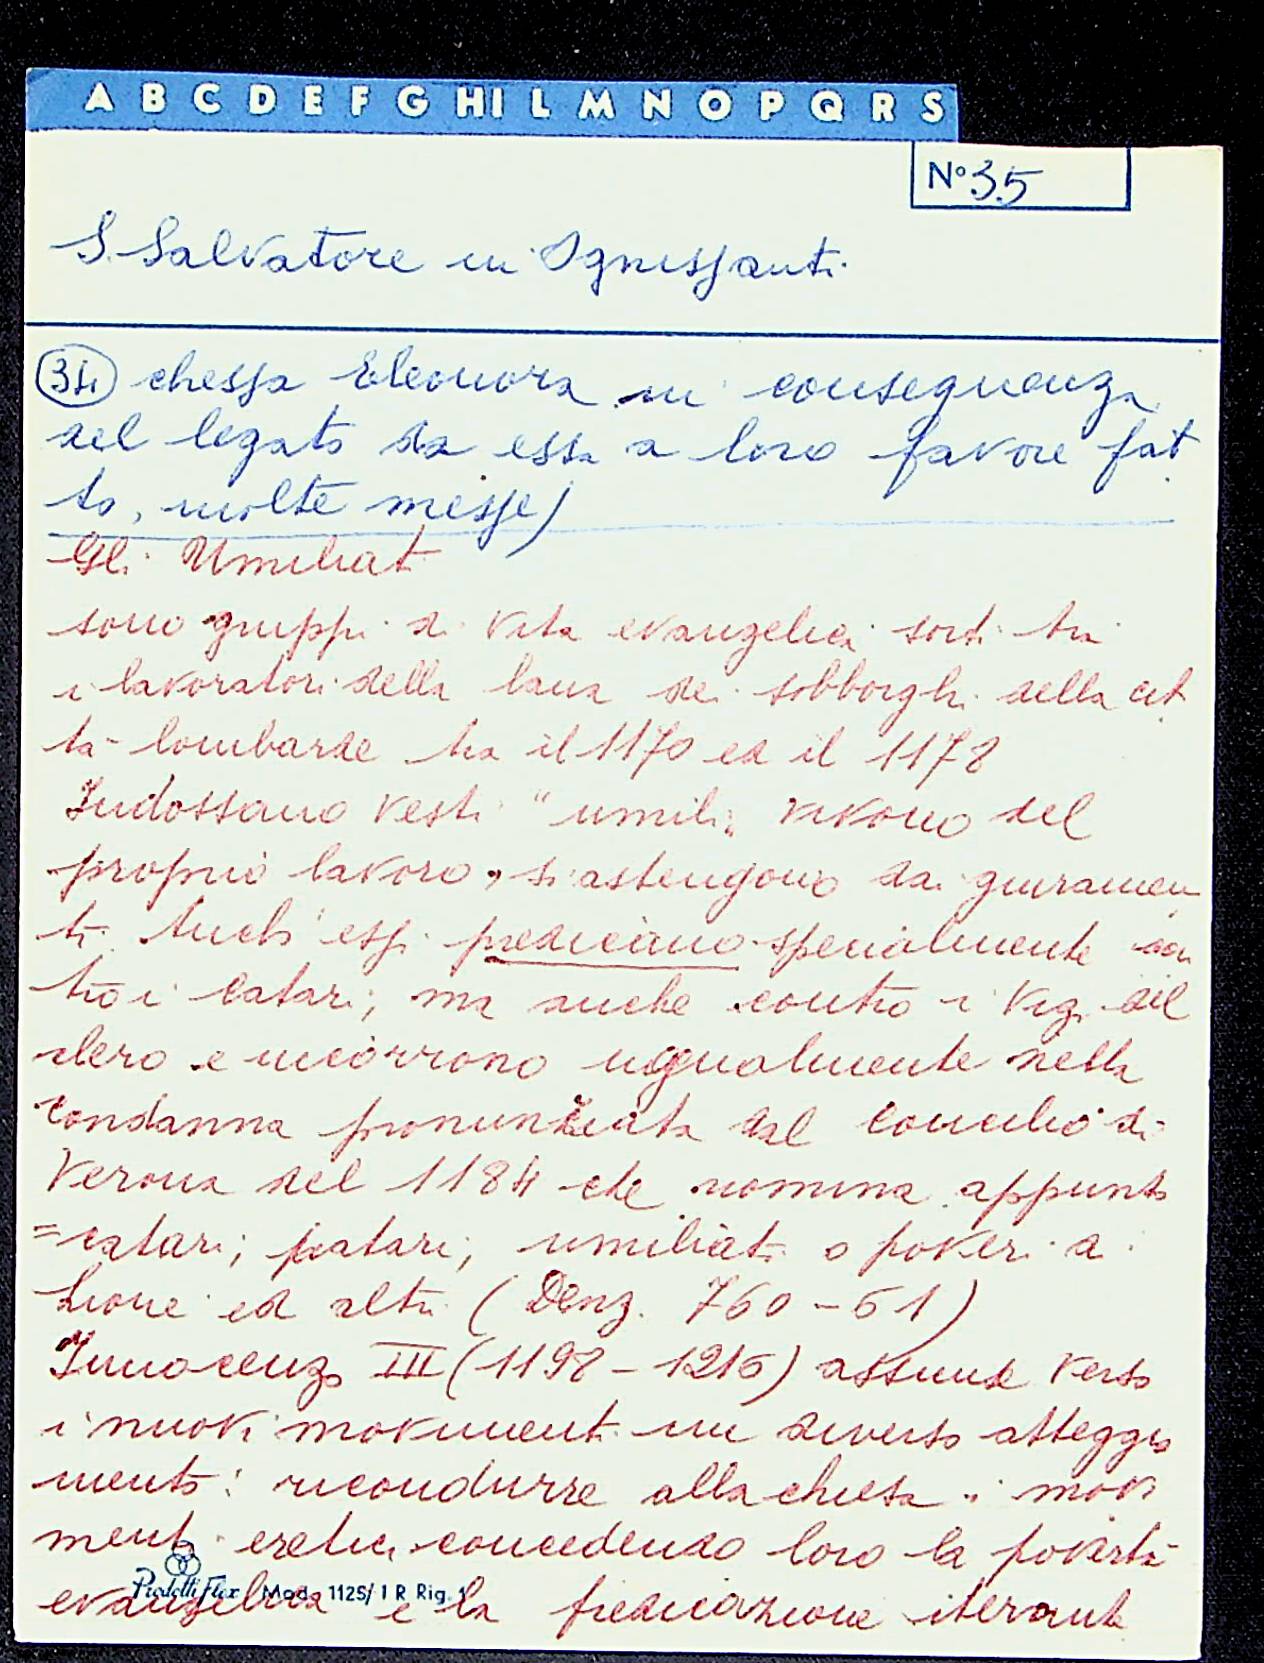 A B C D E F G H I L M N O P Q R S
N° 35
S. Salvatore in Ognissanti.
(34) chessa Eleonora in conseguenza
del legato da essa a loro favore fat
to, molte messe)
Gli Umiliati
sono gruppi di vita evangelica sorti tra
i lavoratori della lana dei sobborghi della cit
tà lombarde tra il 1170 ed il 1178
Indossano vesti "umili" vivono del
proprio lavoro, si astengono dai giuramen
ti. Anch'essi predicano specialmente con
tro i Catari; ma anche contro i vizi del
clero e incorrono ugualmente nella
condanna pronunziata dal concilio di
Verona del 1184 che nomina appunto
= catari; patari; umiliati o poveri di
Lione ed altri (Denz. 760-61)
Innocenzo III (1198-1216) assunse verso
i nuovi movimenti un diverso atteggia
mento: ricondurre alla chiesa i movi
menti eretici concedendo loro la povertà
Predelli Flex Mod. 1125/1 R Rig. 1
evangelica e la predicazione iterante